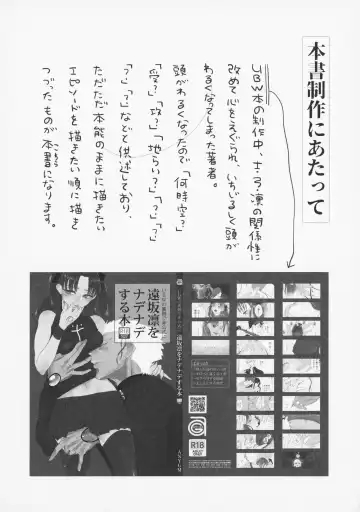 本書制作にあたって
UBW本の制作中、士・弓・凛の関係性に
改めて心をえぐられ、いちじるしく頭が
わるくなってしまった著者。
頭がわるくなったので「何時空?」
「受?」「攻?」「地らい?」「?」「?」
「?」「?」などと供述しており、
ただただ本能のままに描きたい
エピソードを描きたい順に描き
つづったものが本書になります。
遠坂凛を
ナデナデ
する本
遠坂凛をナデナデする本
R18